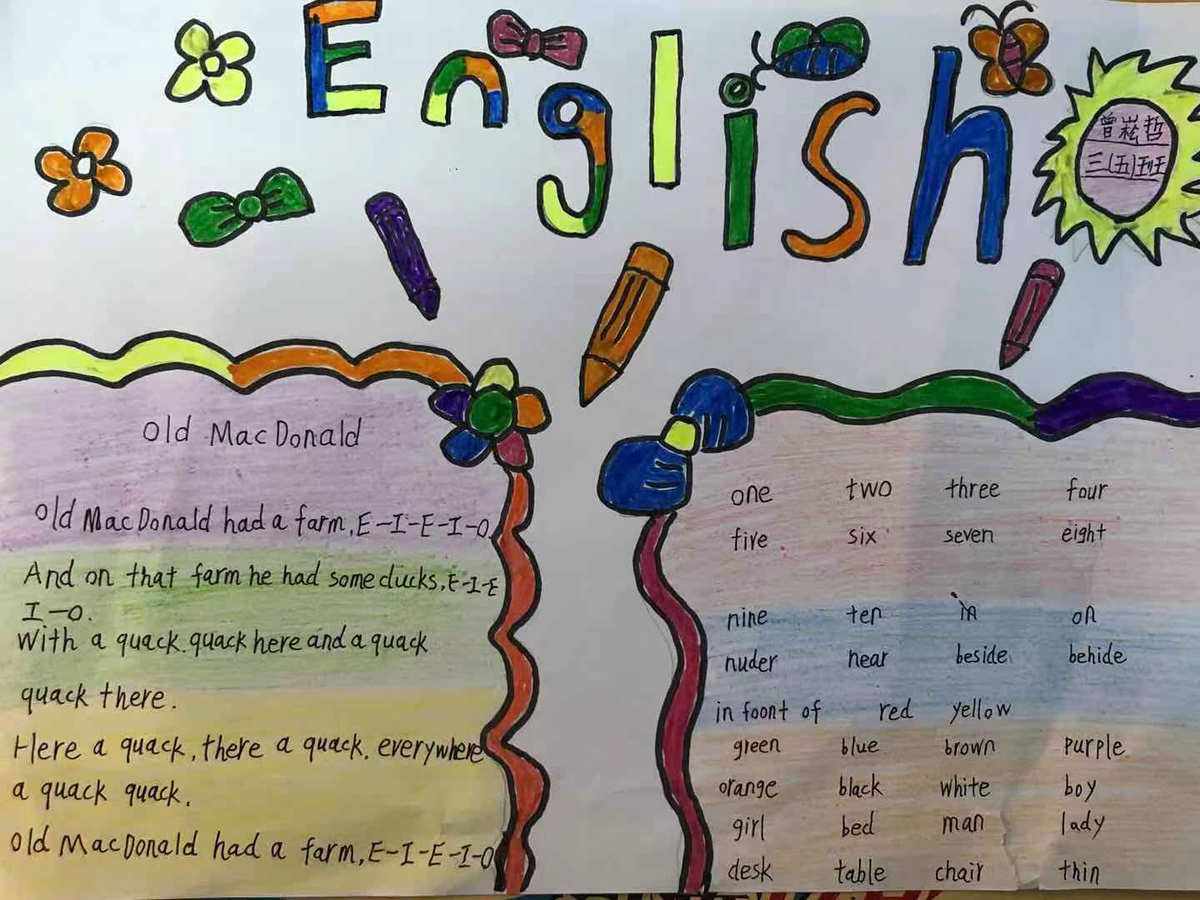 English
曾崧哲
三(五)班
Old MacDonald
Old MacDonald had a farm, E-I-E-I-O.
And on that farm he had some ducks, E-I-E
I-O.
With a quack.quack here and a quack
quack there.
Here a quack, there a quack. everywhere
a quack quack.
Old MacDonald had a farm, E-I-E-I-O
one two three four
five six seven eight
nine ten in on
nuder near beside behide
in foont of red yellow
green blue brown purple
orange black white boy
girl bed man lady
desk table chair thin